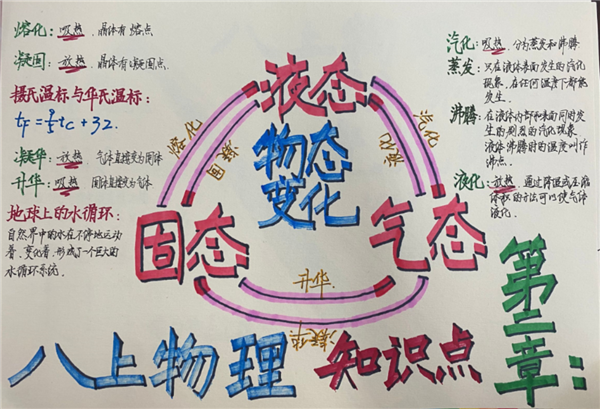 熔化:吸热.晶体有熔点
凝固:放热.晶体有凝固点.
摄氏温标与华氏温标:
tF=9/5tc+32.
凝华:放热 气体直接变为固体
升华:吸热 固体直接变为气体
地球上的水循环:
自然界中的水在不停地运动
着、变化着,形成了一个巨大的
水循环系统.
液态
熔化
凝固
汽化
液化
物态
变化
固态
气态
升华
凝华
汽化:吸热.分为蒸发和沸腾
蒸发:只在液体表面发生的汽化
现象.在任何温度下都能
发生.
沸腾:在液体内部和表面同时发
生的剧烈的汽化现象
液体沸腾时的温度叫作
沸点.
液化:放热.通过降温或压缩
体积的方法可以使气体
液化.
第二章:
八上物理 知识点